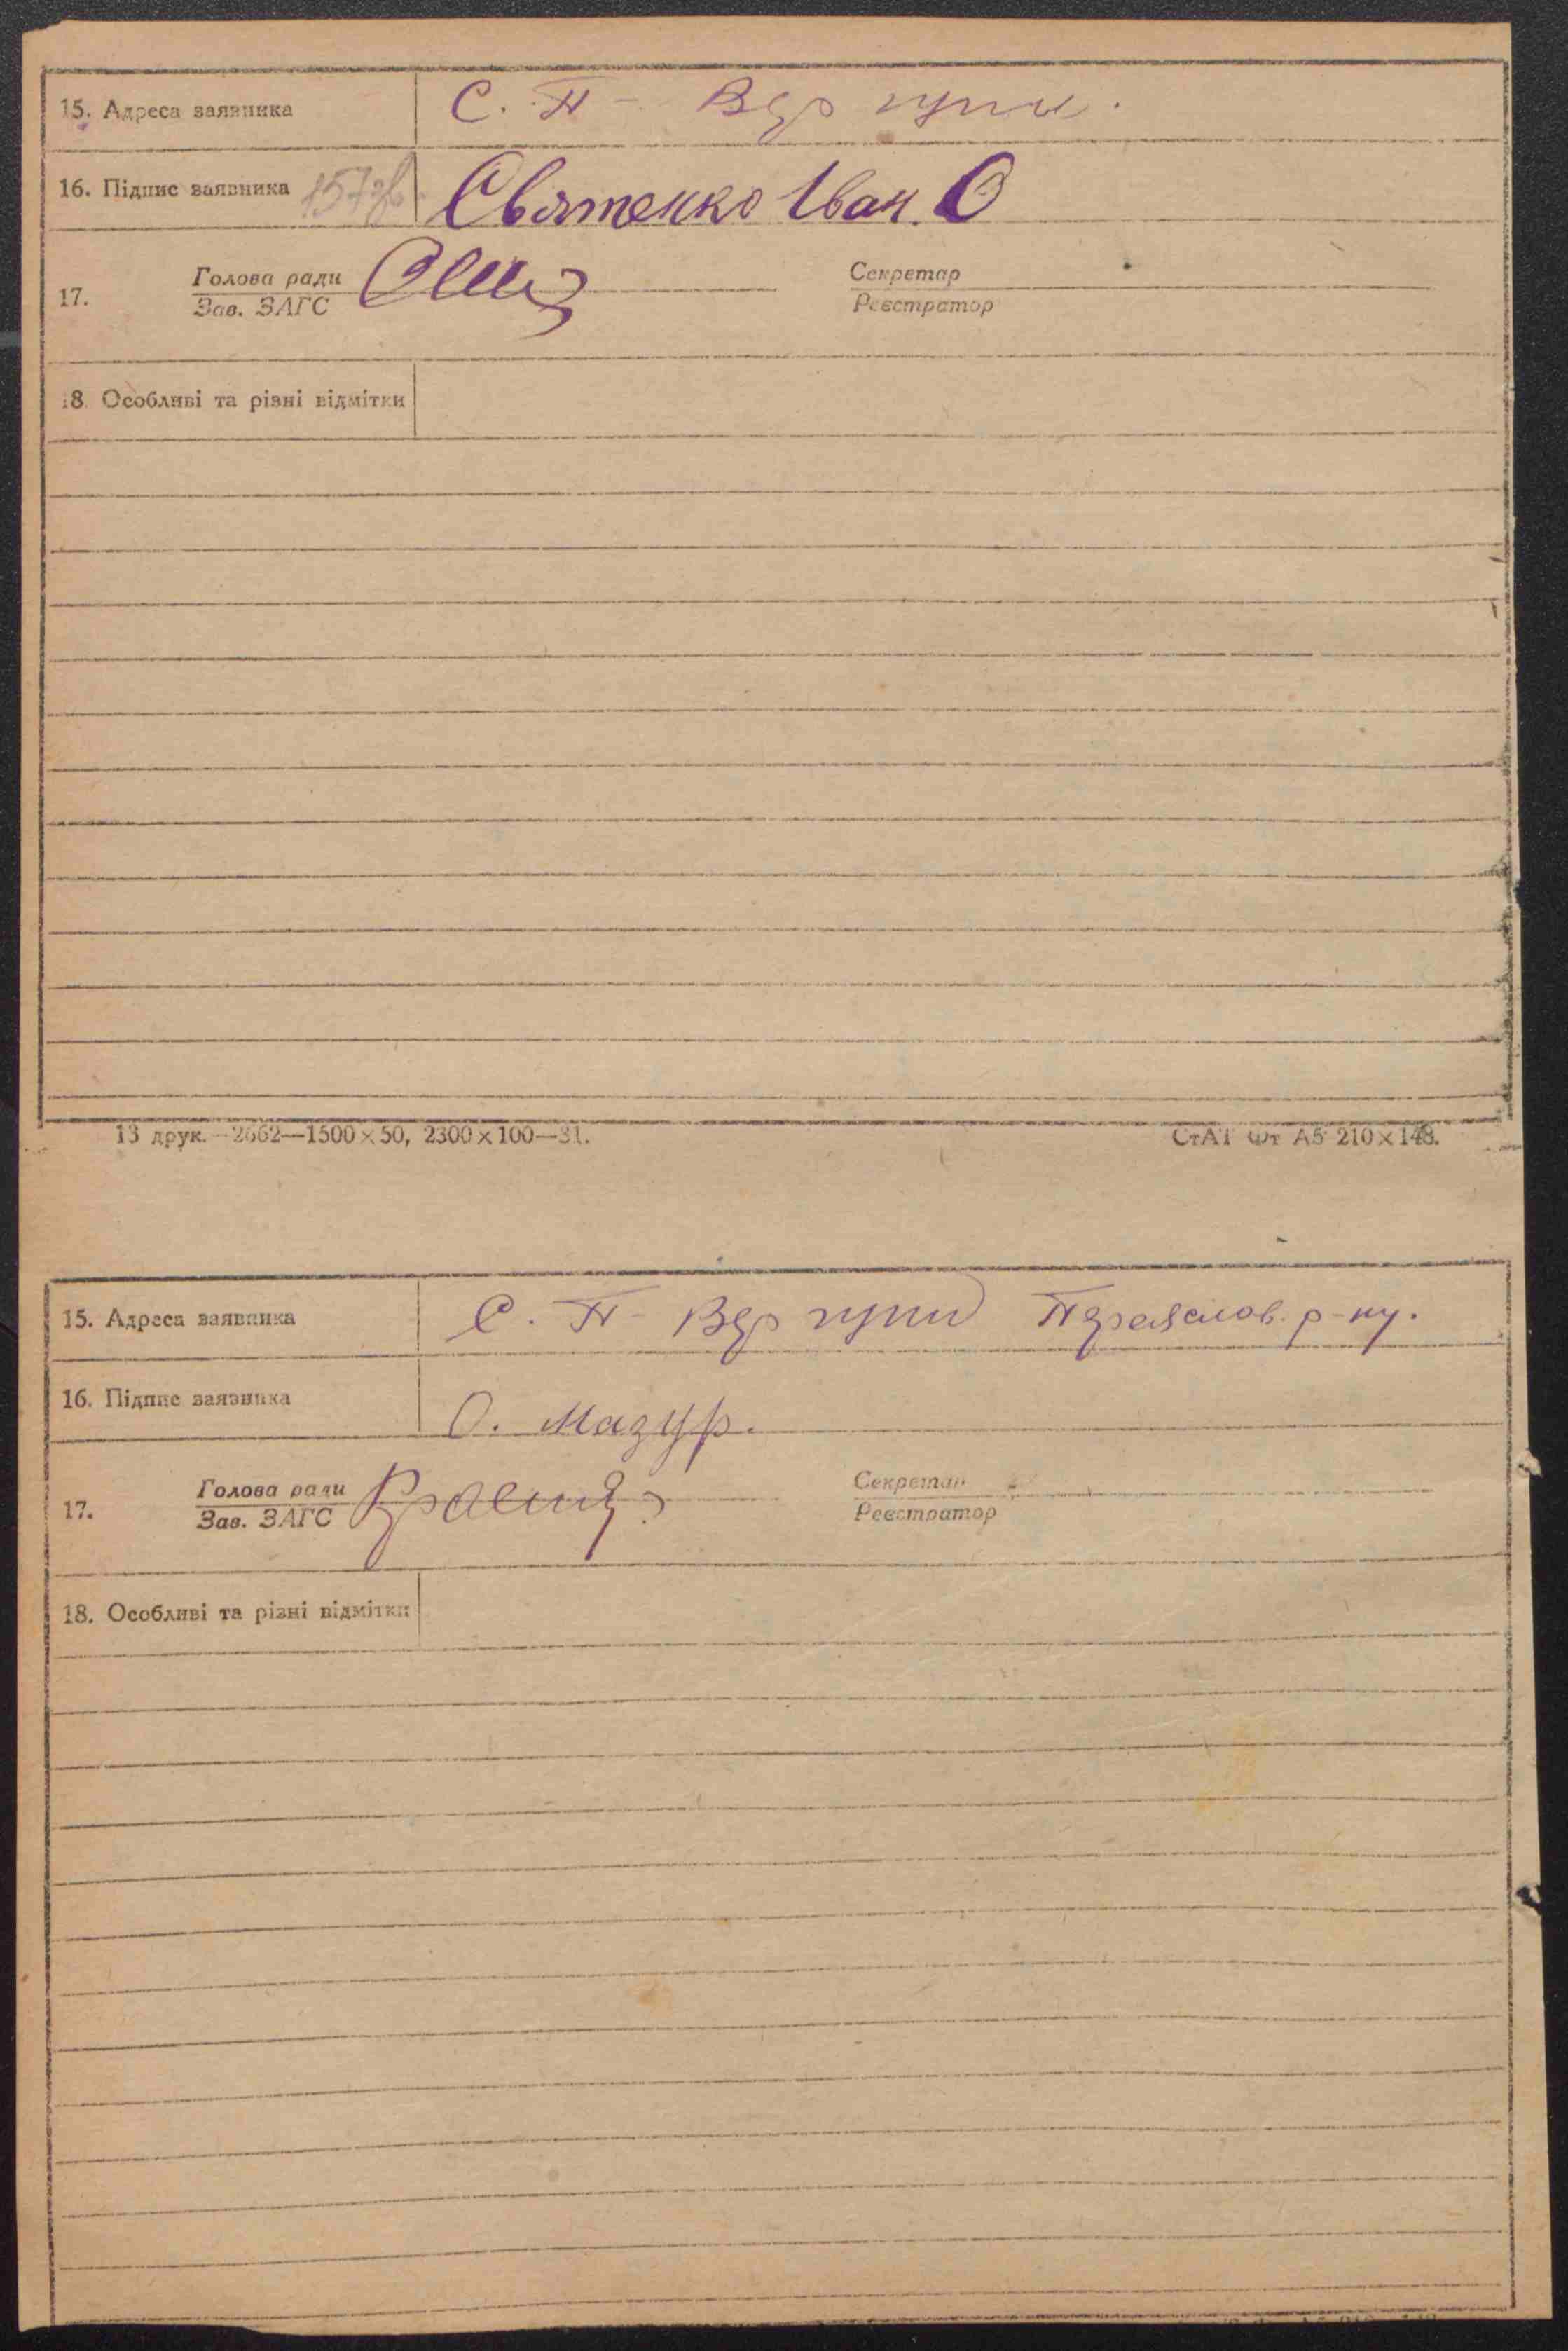 15. Адреса заявника С. П-
16. Підпис заявника Святенко Іван. О
Голова ради Секретар
17.
Зав. ЗАГС Реєстратор
18. Особливі та різні відмітки
13 друк.—2662—1500×50, 2300×100—31. СтАТ Фт А5 210×148.
15. Адреса заявника С. П- р-ну.
16. Підпис заявника О. Мазур.
Голова ради Секретар
17.
Зав. ЗАГС Реєстратор
18. Особливі та різні відмітки